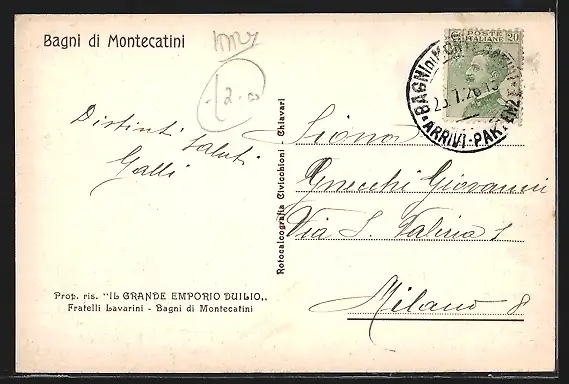 Bagni di Montecatini
Distinti saluti
Galli
Prop. ris. "IL GRANDE EMPORIO DUILIO„
Fratelli Lavarini - Bagni di Montecatini
Rotocalcografia Civicchioni - Chiavari
POSTE ITALIANE 20
BAGNI DI MONTECATINI
ARRIVI-PARTENZE
Gnecchi Giovanni
Via S.
Milano 8